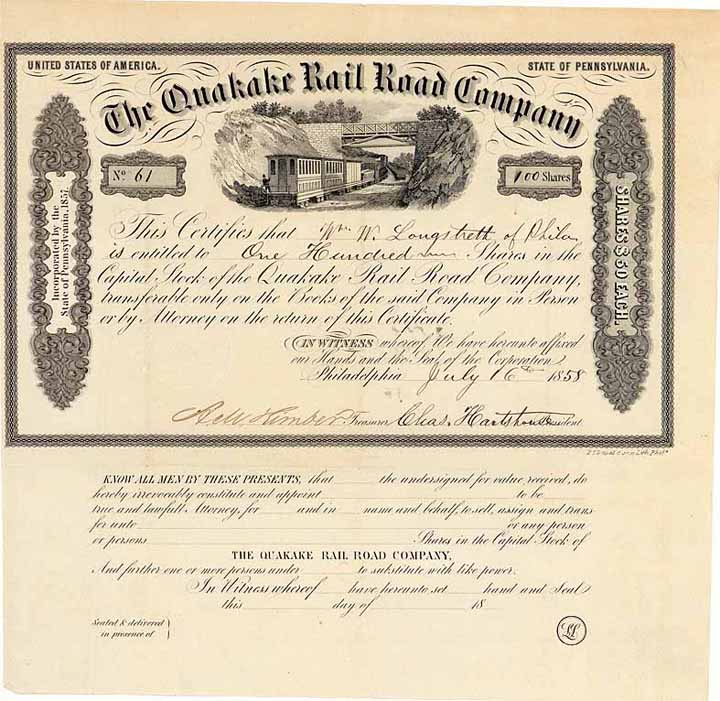 UNITED STATES OF AMERICA. STATE OF PENNSYLVANIA.
The Quakake Rail Road Company
No 61 100 Shares
Incorporated by the State of Pennsylvania, 1857.
SHARES $50 EACH.
This Certifies that Wm W. Longstreth of Phila
is entitled to One Hundred Shares in the
Capital Stock of the Quakake Rail Road Company,
transferable only on the Books of the said Company in Person
or by Attorney on the return of this Certificate.
IN WITNESS whereof, We have hereunto affixed
our Hands and the Seal of the Corporation
Philadelphia July 16th 1858
Treasurer Chas. Hartshorne President
KNOW ALL MEN BY THESE PRESENTS, that the undersigned for value received, do
hereby irrevocably constitute and appoint to be
true and lawfull Attorney, for and in name and behalf, to sell, assign and trans
fer unto or any person
or persons Shares in the Capital Stock of
THE QUAKAKE RAIL ROAD COMPANY,
And further one or more persons under to substitute with like power.
In Witness whereof have hereunto set hand and Seal
this day of 18
Sealed & delivered
in presence of
LS